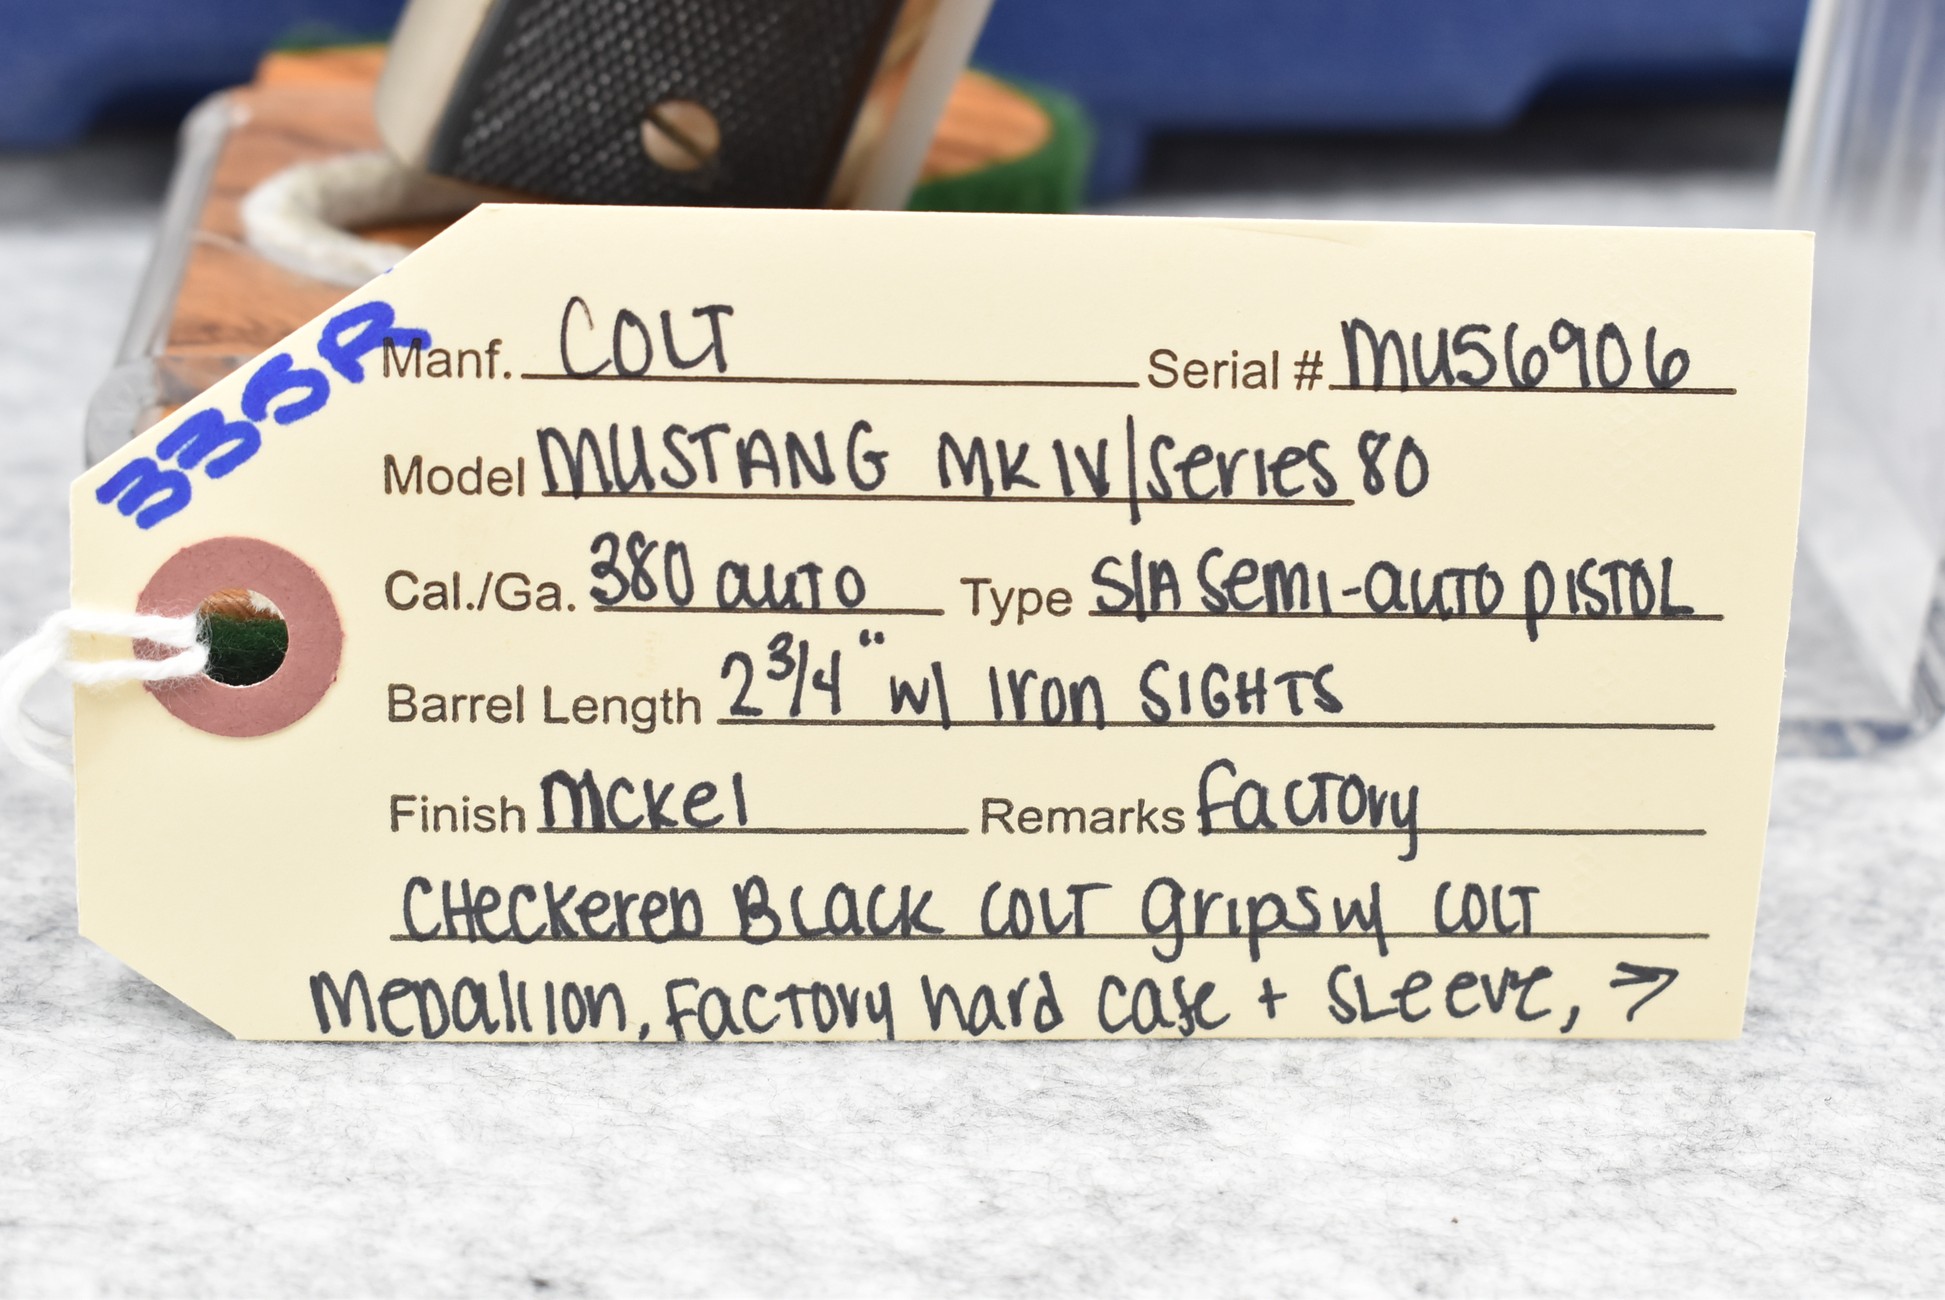 335R
Manf. COLT Serial # MU56906
Model MUSTANG MK IV/Series 80
Cal./Ga. 380 auto Type S/A Semi-auto PISTOL
Barrel Length 2 3/4" w/ Iron SIGHTS
Finish Nickel Remarks Factory
CHeckereD Black COLT Grips w/ COLT
MeDallion, Factory hard case + SLeeve, →